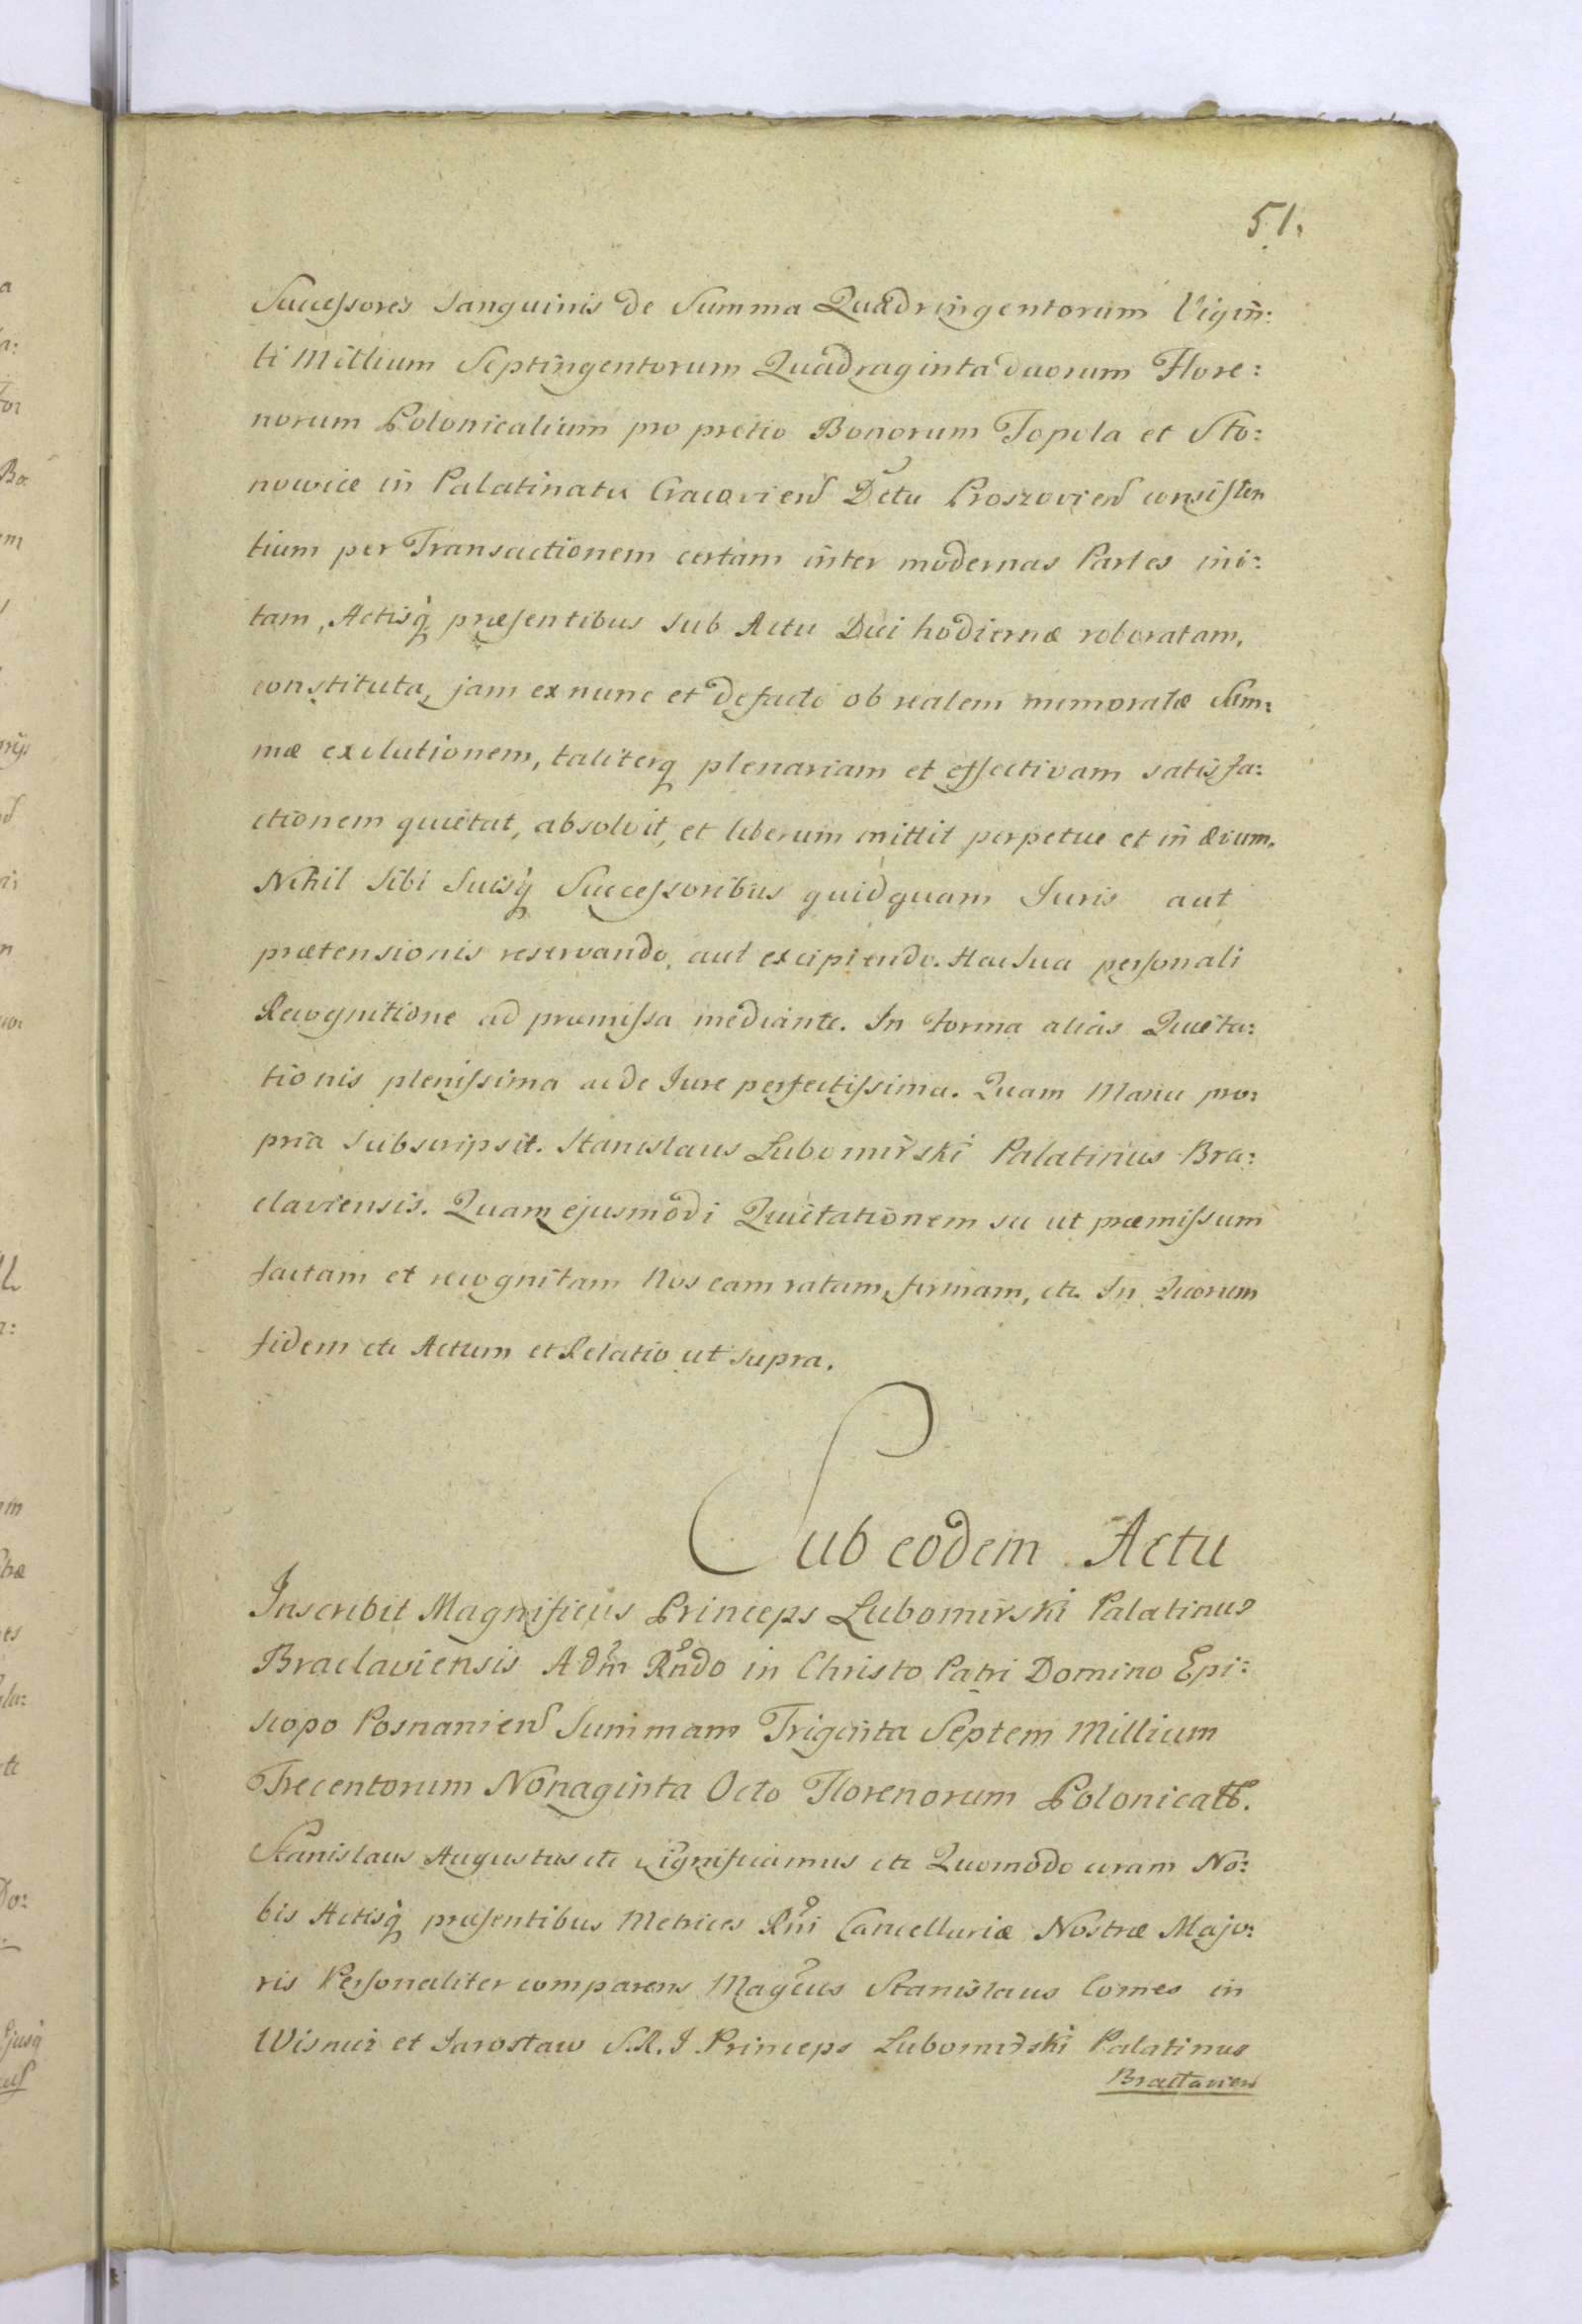 51.
Successores Sanguinis de Summa Quadringentorum Vigin:
ti Millium Septingentorum Quadraginta duorum Flore:
norum Polonicalium pro pretio Bonorum Topola et Sto:
nowice in Palatinatu Cracovien Dctu Proszovien consisten
tium per Transactionem certam inter modernas Partes ini:
tam, Actisq præsentibus sub Actu Diei hodiernæ roboratam,
constituta, jam ex nunc et defacto ob realem memoratæ Sum:
mæ exolutionem, taliterq plenariam et effectivam satisfa:
ctionem quietat, absolvit, et liberum mittit perpetue et in ævum.
Nihil Sibi Suisq Successoribus quidquam Juris aut
prætensionis reservando, aut excipiendo. Hac Sua personali
Recognitione ad præmissa mediante. In forma alias Quieta:
tionis plenissima ac de Jure perfectissima. Quam Manu pro:
pria Subscripsit. Stanislaus Lubomirski Palatinus Bra:
claviensis. Quam ejusmodi Quietationem sic ut præmissum
factam et recognitam Nos eam ratam, firmam, etc. In Quorum
fidem etc Actum et Relatio ut supra.
Sub eodem Actu
Inscribit Magnificus Princeps Lubomirski Palatinus
Braclaviensis Adm Rndo in Christo Patri Domino Epi:
scopo Posnanien Summam Triginta Septem Millium
Trecentorum Nonaginta Octo Florenorum Polonicall.
Stanislaus Augustus etc Significamus etc Quomodo coram No:
bis Actisq præsentibus Metrices Rni Cancellariæ Nostræ Majo:
ris Personaliter comparens Magcus Stanislaus Comes in
Wisnicz et Jarosław S.R.I Princeps Lubomirski Palatinus
Braclavien